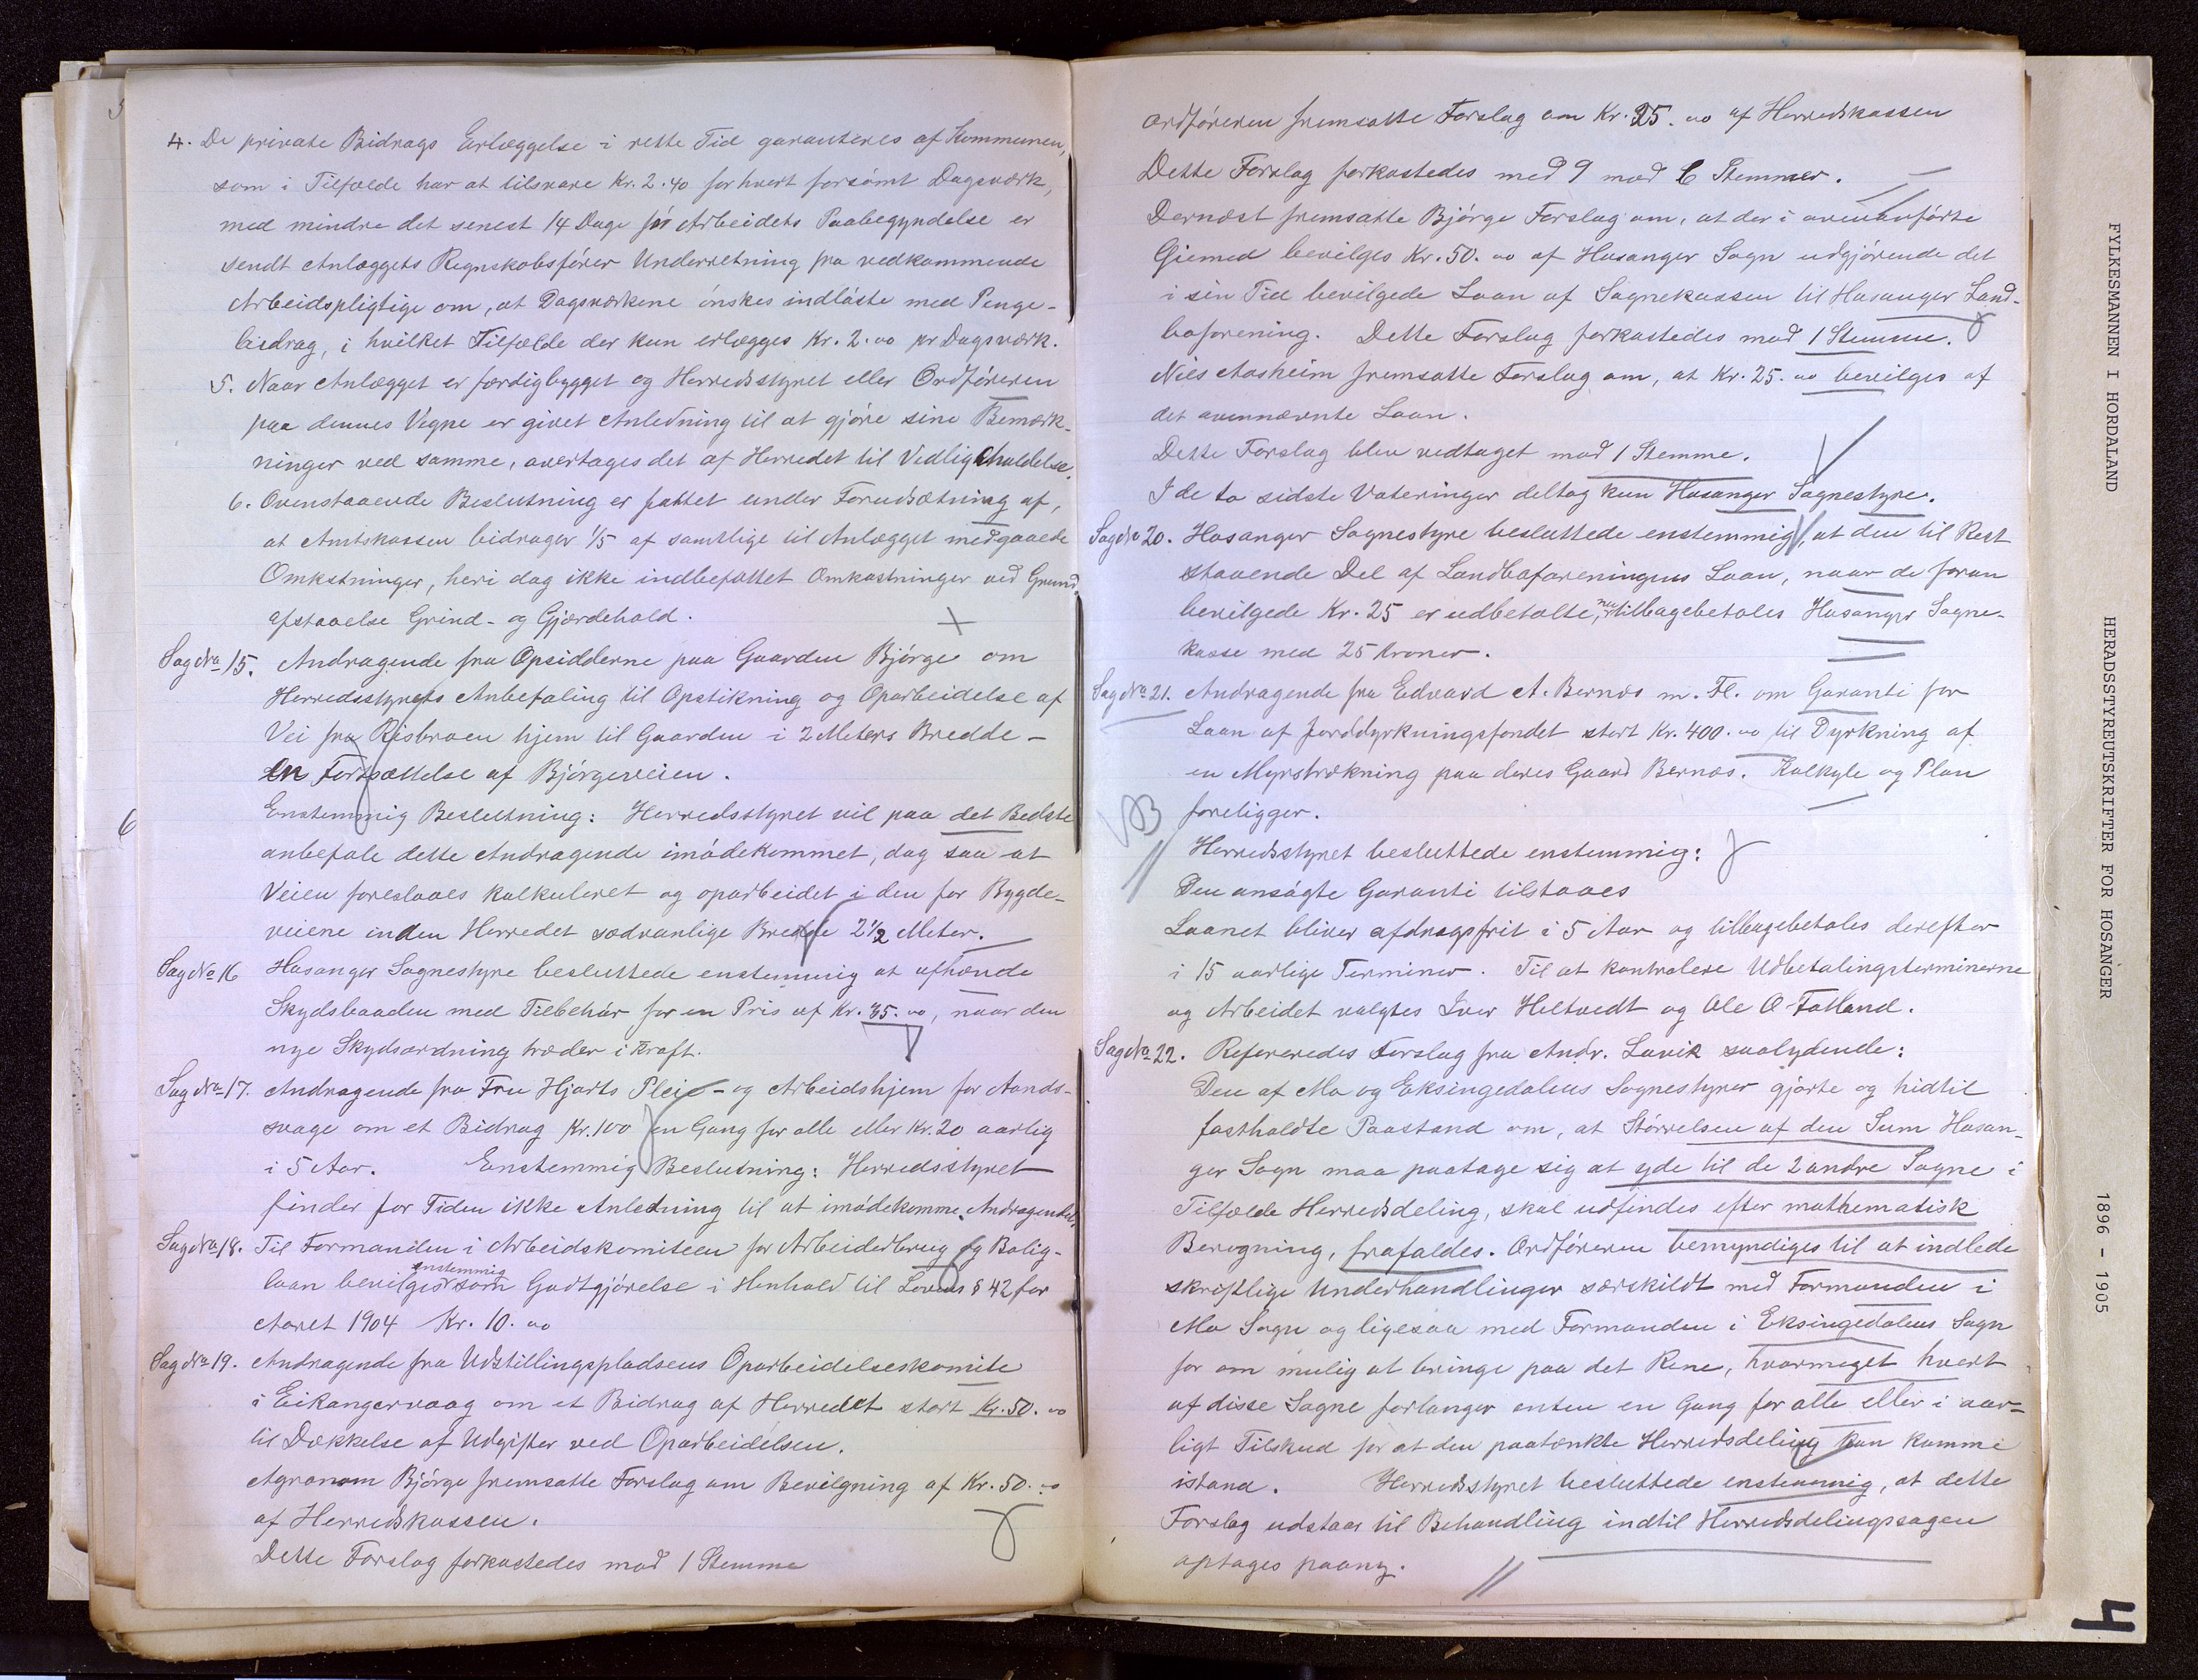 4. De private Bidrags Erlæggelse i rette Tid garanteres af Kommunen,
som i Tilfælde har at tilsvare Kr. 2.40 for hvert forsømt Dagsværk,
med mindre det senest 14 Dage før Arbeidets Paabegyndelse er
sendt Anlæggets Regnskabsfører Underretning fra vedkommende
Arbeidspligtige om, at Dagsværkene ønskes indløste med Penge-
bidrag, i hvilket Tilfælde der kun erlægges Kr. 2.00 pr Dagsværk.
5. Naar Anlægget er færdigbygget og Herredsstyret eller Ordføreren
paa dennes Vegne er givet Anledning til at gjøre sine Bemærk-
ninger ved samme, overtages det af Herredet til Vedligeholdelse.
6. Ovenstaaende Beslutning er fattet under Forudsætning af,
at Amtskassen bidrager 1/5 af samtlige til Anlægget medgaaede
Omkstninger, heri dog ikke indbefattet Omkostninger ved Grund-
afstaaelse Grind- og Gjærdehold.
Sag No 15. Andragende fra Opsidderne paa Gaarden Bjørge om
Herredsstyrets Anbefaling til Opstikning og Oparbeidelse af
Vei fra Risbroen hjem til Gaarden i 2 Meters Bredde -
en Fortsættelse af Bjørgeveien.
Enstemmig Beslutning: Herredsstyret vil paa det Bedste
anbefale dette Andragende imødekommet, dog saa at
Veien foreslaaes kalkuleret og oparbeidet i den for Bygde-
veiene inden Herredet sædvanlige Bredde 2 1/2 Meter.
6
Sag No 16 Hosanger Sognestyre besluttede enstemmig at afhænde
Skydsbaaden med Tilbehør for en Pris af Kr. 35.00, naar den
nye Skydsordning træder i Kraft.
Sag No 17. Andragende fra Fru Hjorts Pleie- og Arbeidshjem for Aands-
svage om et Bidrag Kr. 100 en Gang for alle eller Kr. 20 aarlig
i 5 Aar. Enstemmig Beslutning: Herredsstyret
finder for Tiden ikke Anledning til at imødekomme Andragendet.
Sag No 18. Til Formanden i Arbeidskomiteen for Arbeiderbrug og Bolig-
laan bevilges enstemmig som Godtgjørelse i Henhold til Lovens § 42 for
Aaret 1904 Kr. 10.00
Sag No 19. Andragende fra Udstillingspladsens Oparbeidelseskomite
i Eikangervaag om et Bidrag af Herredet stort Kr. 50.00
til Dækkelse af Udgifter ved Oparbeidelsen.
Agronom Bjørge fremsatte Forslag om Bevilgning af Kr. 50.00
af Herredskassen.
Dette Forslag forkastedes mod 1 Stemme
Ordføreren fremsatte Forslag om Kr. 25.00 af Herredskassen
Dette Forslag forkastedes med 9 mod 6 Stemmer.
Dernæst fremsatte Bjørge Forslag om, at der i ovenanførte
Øiemed bevilges Kr. 50.00 af Hosanger Sogn udgjørende det
i sin Tid bevilgede Laan af Sognekassen til Hosanger Land-
boforening. Dette Forslag forkastedes mod 1 Stemme.
Niels Aasheim fremsatte Forslag om, at Kr. 25.00 bevilges af
det ovennævnte Laan.
Dette Forslag blev vedtaget mod 1 Stemme.
I de to sidste Voteringer deltog kun Hosanger Sognestyre.
Sag No 20. Hosanger Sognestyre besluttede enstemmig, at den til Rest
staaende Del af Landboforeningens Laan, naar de foran
bevilgede Kr. 25 er udbetalte, nu tilbagebetales Hosanger Sogne-
kasse med 25 Kroner.
Sag No 21. Andragende fra Edvard A. Bernæs m. Fl. om Garanti for
Laan af Jorddyrkningsfondet stort Kr. 400.00 til Dyrkning af
en Myrstrækning paa deres Gaard Bernæs. Kalkyle og Plan
foreligger.
Herredsstyret besluttede enstemmig:
Den ansøgte Garanti tilstaaes
Laanet bliver afdragsfrit i 5 Aar og tilbagebetales derefter
i 15 aarlige Terminer. Til at kontrolere Udbetalingsterminerne
og Arbeidet valgtes Iver Heltvedt og Ole O Fatland.
Sag No 22. Refereredes Forslag fra Andr. Lavik saalydende:
Den af Mo og Eksingedalens Sognestyrer gjorte og hidtil
fastholdte Paastand om, at Størrelsen af den Sum Hosan-
ger Sogn maa paatage sig at yde til de 2 andre Sogne i
Tilfælde Herredsdeling, skal udfindes efter mathematisk
Beregning, frafaldes. Ordføreren bemyndiges til at indlede
skriftlige Underhandlinger særskildt med Formanden i
Mo Sogn og ligesaa med Formanden i Eksingedalens Sogn
for om mulig at bringe paa det Rene, hvormeget hvert
af disse Sogne forlanger enten en Gang for alle eller i aar-
ligt Tilskud for at den paatænkte Herredsdeling kan komme
istand. Herredsstyret besluttede enstemmig, at dette
Forslag udstaar til Behandling indtil Herredsdelingssagen
optages paany.
FYLKESMANNEN I HORDALAND
HERADSSTYREUTSKRIFTER FOR HOSANGER
1896 - 1905
4